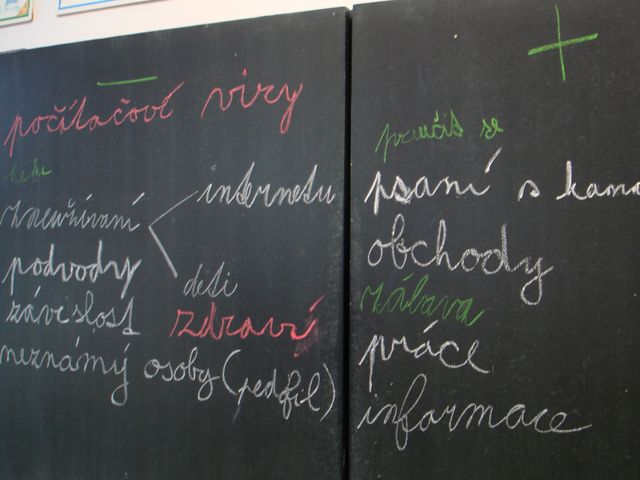 —
počítačové viry
zneužívání
internetu
dětí
podvody
závislost
zdraví
neznámý osoby (pedofil)
+
naučíš se
psaní s kama
obchody
zábava
práce
informace